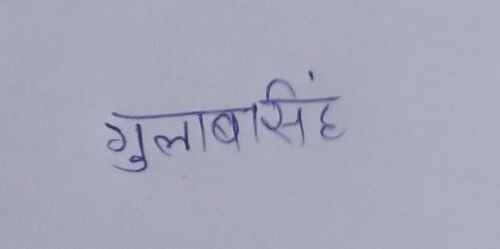 गुलाबसिंह